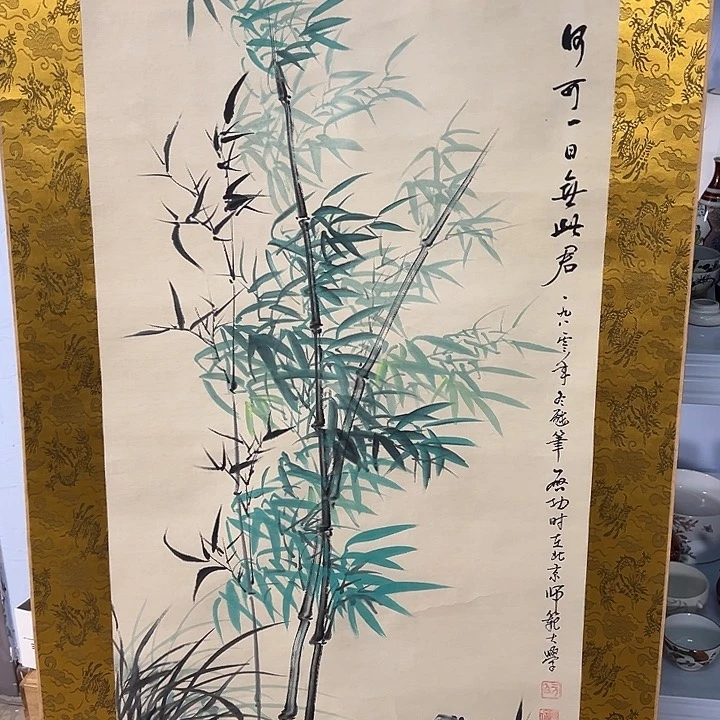 何可一日無此君
一九八零年冬 筆 啟功时在北京师範大學